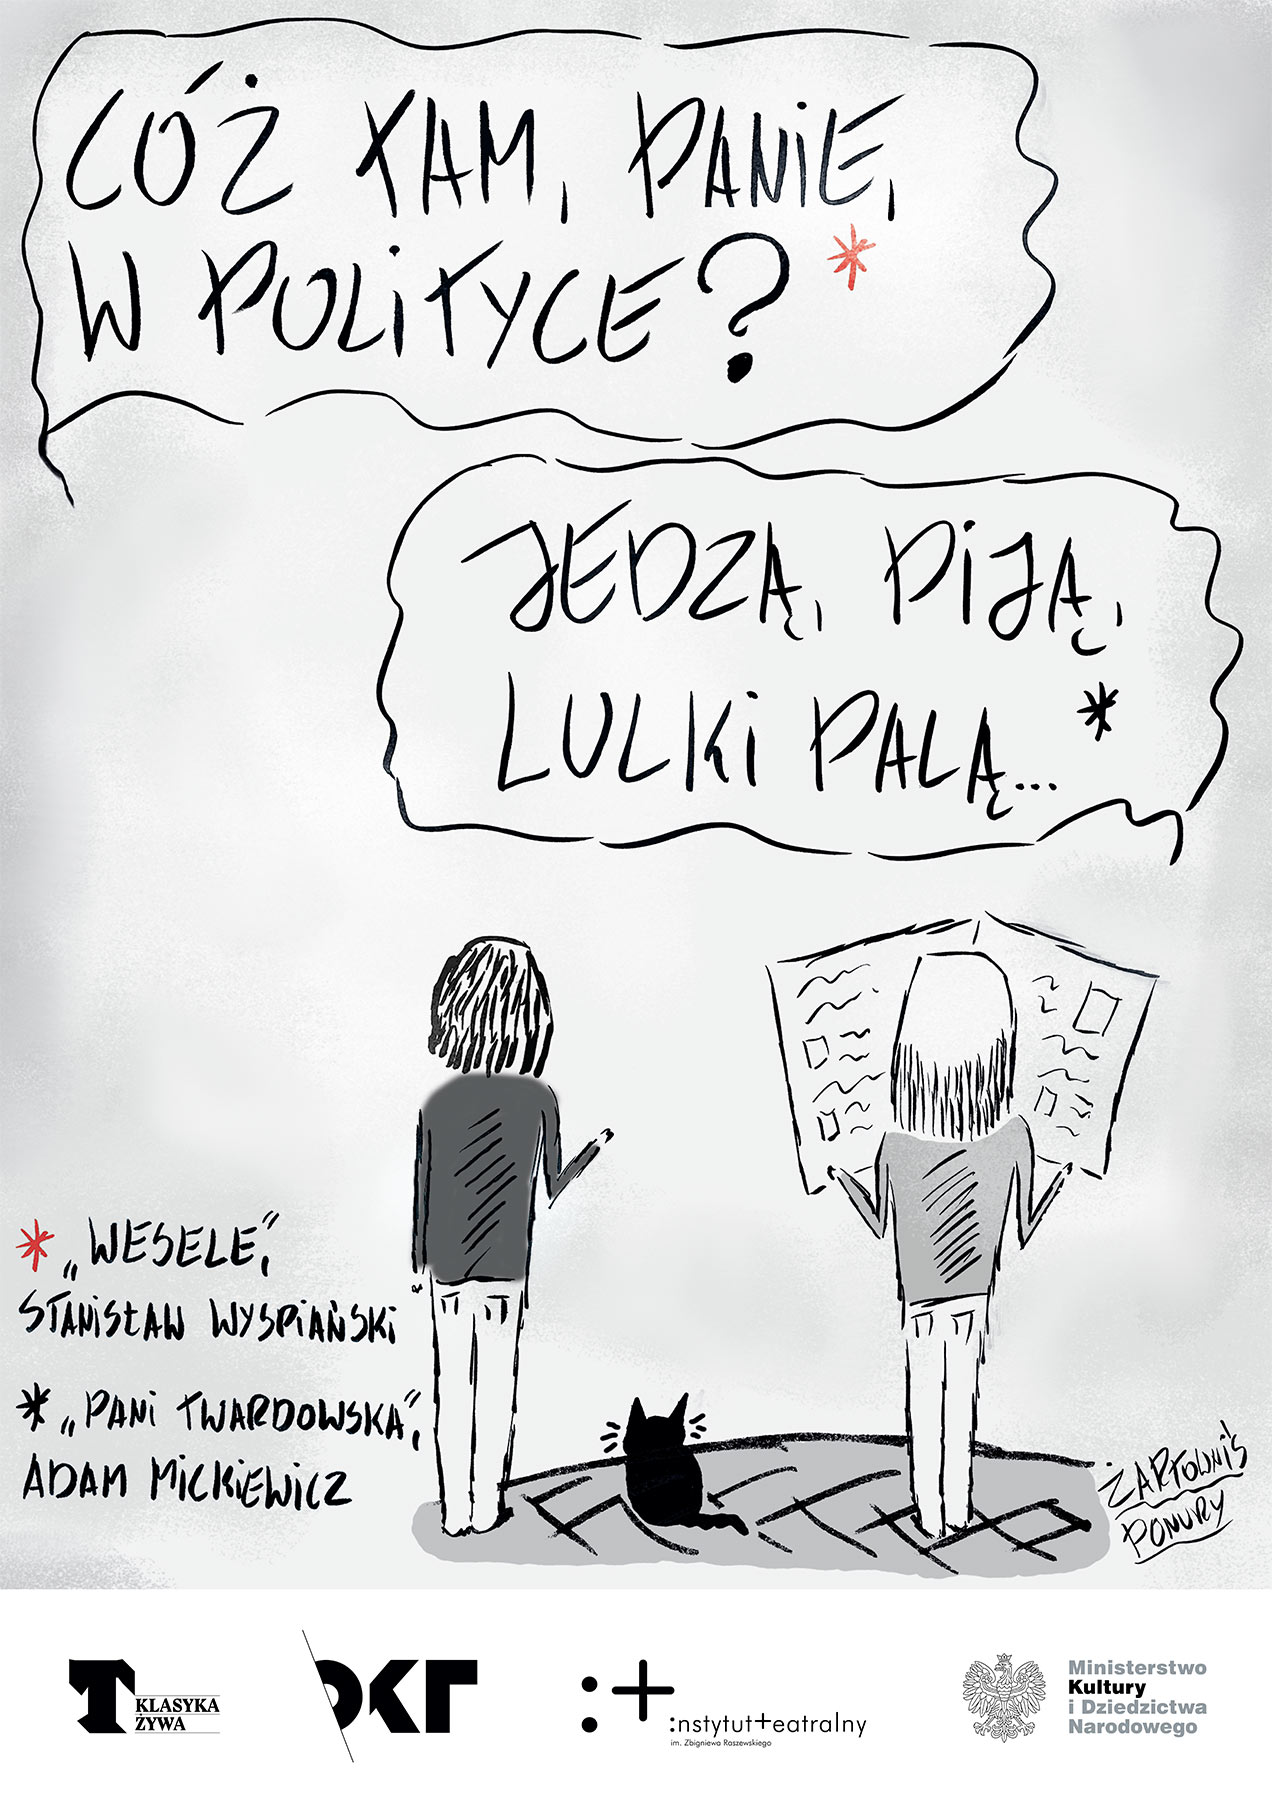 CÓŻ TAM, PANIE,
W POLITYCE?*
JEDZĄ, PIJĄ,
LULKI PALĄ...*
* „WESELE”,
STANISŁAW WYSPIAŃSKI
* „PANI TWARDOWSKA”,
ADAM MICKIEWICZ
ŻARŁOWNIŚ
PONURY
T KLASYKA
ŻYWA
OKT
:+
:nstytut+eatralny
im. Zbigniewa Raszewskiego
Ministerstwo
Kultury
i Dziedzictwa
Narodowego